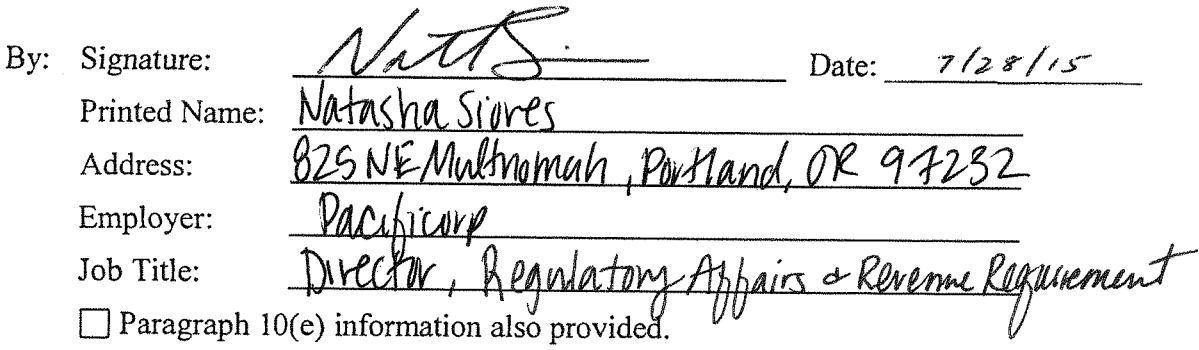 By: Signature: Date: 7/28/15
Printed Name: Natasha Siores
Address: 825 NE Multnomah, Portland, OR 97232
Employer: Pacificorp
Job Title: Director, Regulatory Affairs & Revenue Requirement
☐ Paragraph 10(e) information also provided.